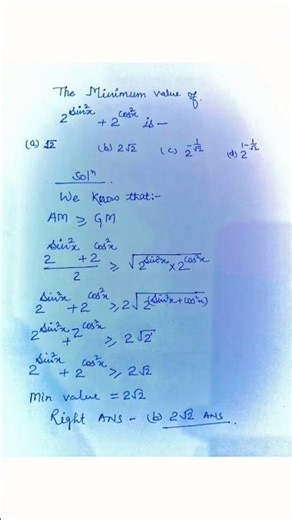 The Minimum value of
2^sin²x + 2^cos²x is -
(a) √2 (b) 2√2 (c) 2^-1/√2 (d) 2^1-1/√2
Solⁿ
We know that:-
AM ≥ GM
2^sin²x + 2^cos²x / 2 ≥ √2^sin²x × 2^cos²x
2^sin²x + 2^cos²x ≥ 2√2^(sin²x + cos²x)
2^sin²x + 2^cos²x ≥ 2√2
2^sin²x + 2^cos²x ≥ 2√2
Min value = 2√2
Right ANS - (b) 2√2 ANS